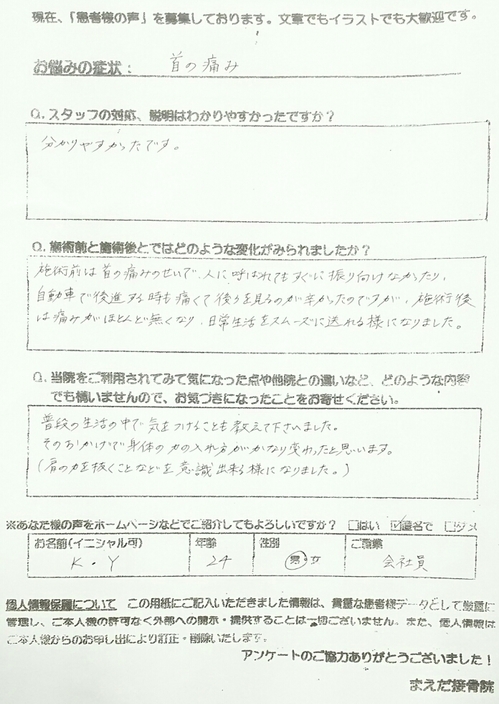 現在、「患者様の声」を募集しております。文章でもイラストでも大歓迎です。
お悩みの症状： 首の痛み
Q. スタッフの対応、説明はわかりやすかったですか？
分かりやすかったです。
Q. 施術前と施術後とではどのような変化がみられましたか？
施術前は首の痛みのせいで、人に呼ばれてもすぐに振り向けなかったり、
自動車で後進する時も痛くて後ろを見るのが辛かったのですが、施術後
は痛みがほとんど無くなり、日常生活をスムーズに送れる様になりました。
Q. 当院をご利用されてみて気になった点や他院との違いなど、どのような内容
でも構いませんので、お気づきになったことをお寄せください。
普段の生活の中で気をつけることも教えて下さいました。
そのおかげで身体の力の入れ方がかなり変わったと思います。
(肩の力を抜くことなどを意識出来る様になりました。)
※あなた様の声をホームページなどでご紹介してもよろしいですか？ □はい ☑匿名で □ダメ
お名前(イニシャル可) 年齢 性別 ご職業
K・Y 24 男・女 会社員
個人情報保護について この用紙にご記入いただきました情報は、貴重な患者様データとして厳重に
管理し、ご本人様の許可なく外部への開示・提供することは一切ございません。また、個人情報は
ご本人様からのお申し出により訂正・削除いたします。
アンケートのご協力ありがとうございました！
まえだ接骨院